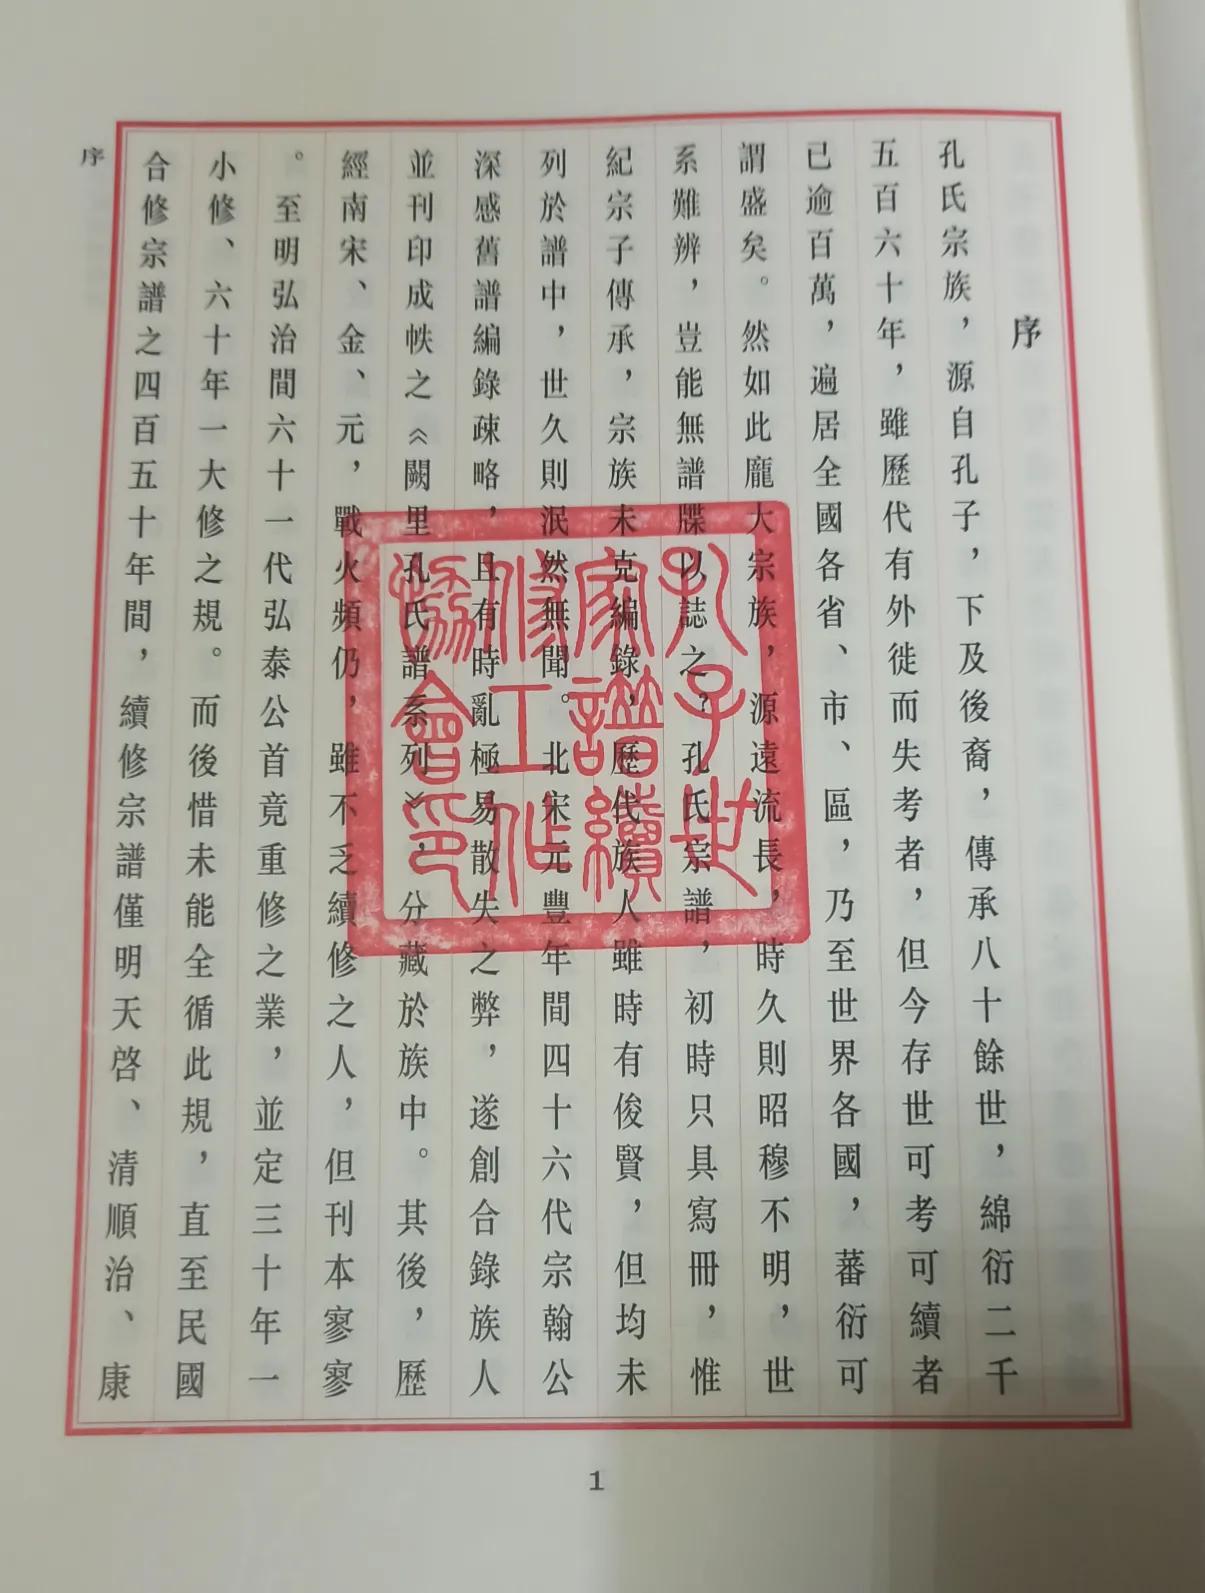 序
孔氏宗族，源自孔子，下及後裔，傳承八十餘世，綿衍二千
五百六十年，雖歷代有外徙而失考者，但今存世可考可續者
已逾百萬，遍居全國各省、市、區，乃至世界各國，蕃衍可
謂盛矣。然如此龐大宗族，源遠流長，時久則昭穆不明，世
系難辨，豈能無譜牒以誌之？孔氏宗譜，初時只具寫冊，惟
紀宗子傳承，宗族未克編錄，歷代族人雖時有俊賢，但均未
列於譜中，世久則泯然無聞。北宋元豐年間四十六代宗翰公
深感舊譜編錄疎略，且有時亂極易散失之弊，遂創合錄族人
並刊印成帙之《闕里孔氏譜系列》，分藏於族中。其後，歷
經南宋、金、元，戰火頻仍，雖不乏續修之人，但刊本寥寥
。至明弘治間六十一代弘泰公首竟重修之業，並定三十年一
小修、六十年一大修之規。而後惜未能全循此規，直至民國
合修宗譜之四百五十年間，續修宗譜僅明天啓、清順治、康
序
孔子世
家譜續
修工作
協會印
1